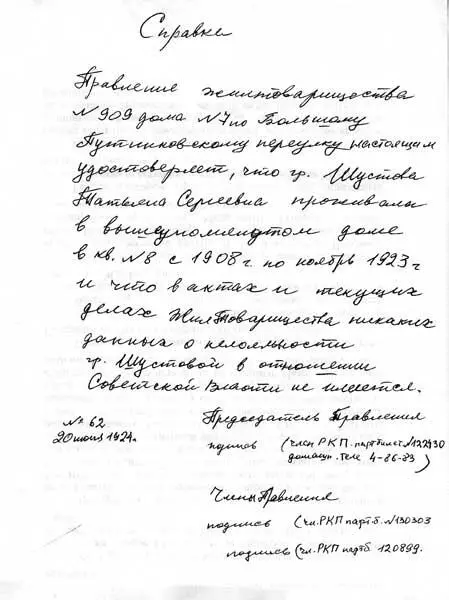 Справка
Правление жилтоварищества
№909 дома №7 по Большому
Путинковскому переулку настоящим
удостоверяет, что гр. Шустова
Татьяна Сергеевна проживала
в вышеупомянутом доме
в кв. №8 с 1908 г. по ноябрь 1923 г
и что в актах и текущих
делах ЖилТоварищества никаких
данных о нелояльности
гр. Шустовой в отношении
Советской Власти не имеется.
№ 62
20 июня 1924г.
Председатель Правления
подпись (член РКП. партбилет №122430
домашн. теле 4-86-83)
Члены Правления
подпись (чл. РКП парт.б. №130303
подпись (чл. РКП партб 120899.